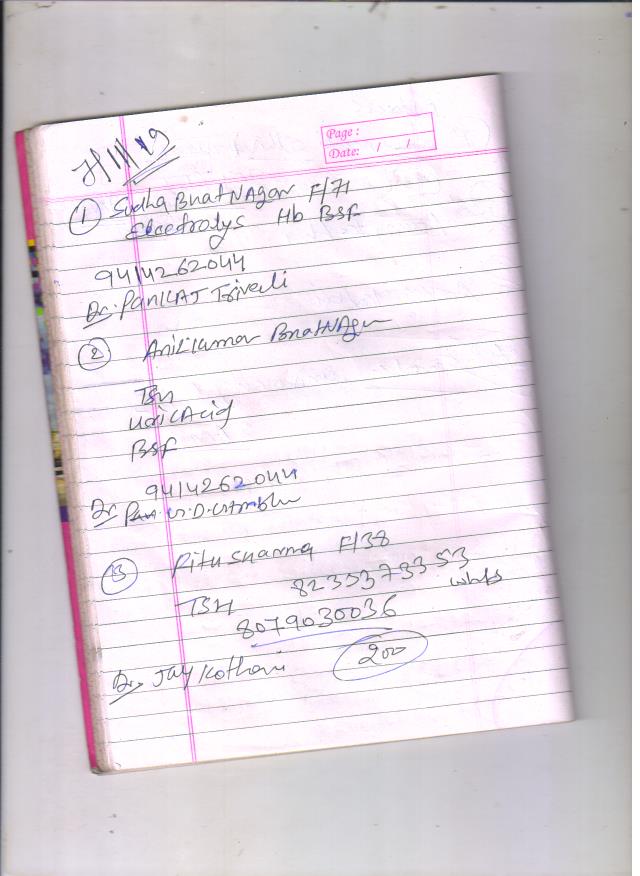 Page :
Date: / /
1 Sudha BhatNAgar F/71
Electrolys Hb BSF
9414262044
Dr. PANKAJ Trivedi
2 Anil Kumar BhatNAgar
TSH
Uric Acid
BSF
9414262044
Dr. G.D.
3 Ritu Sharma F/38
8233373353
TSH
8079030036
Dr. JAY Kothari 200